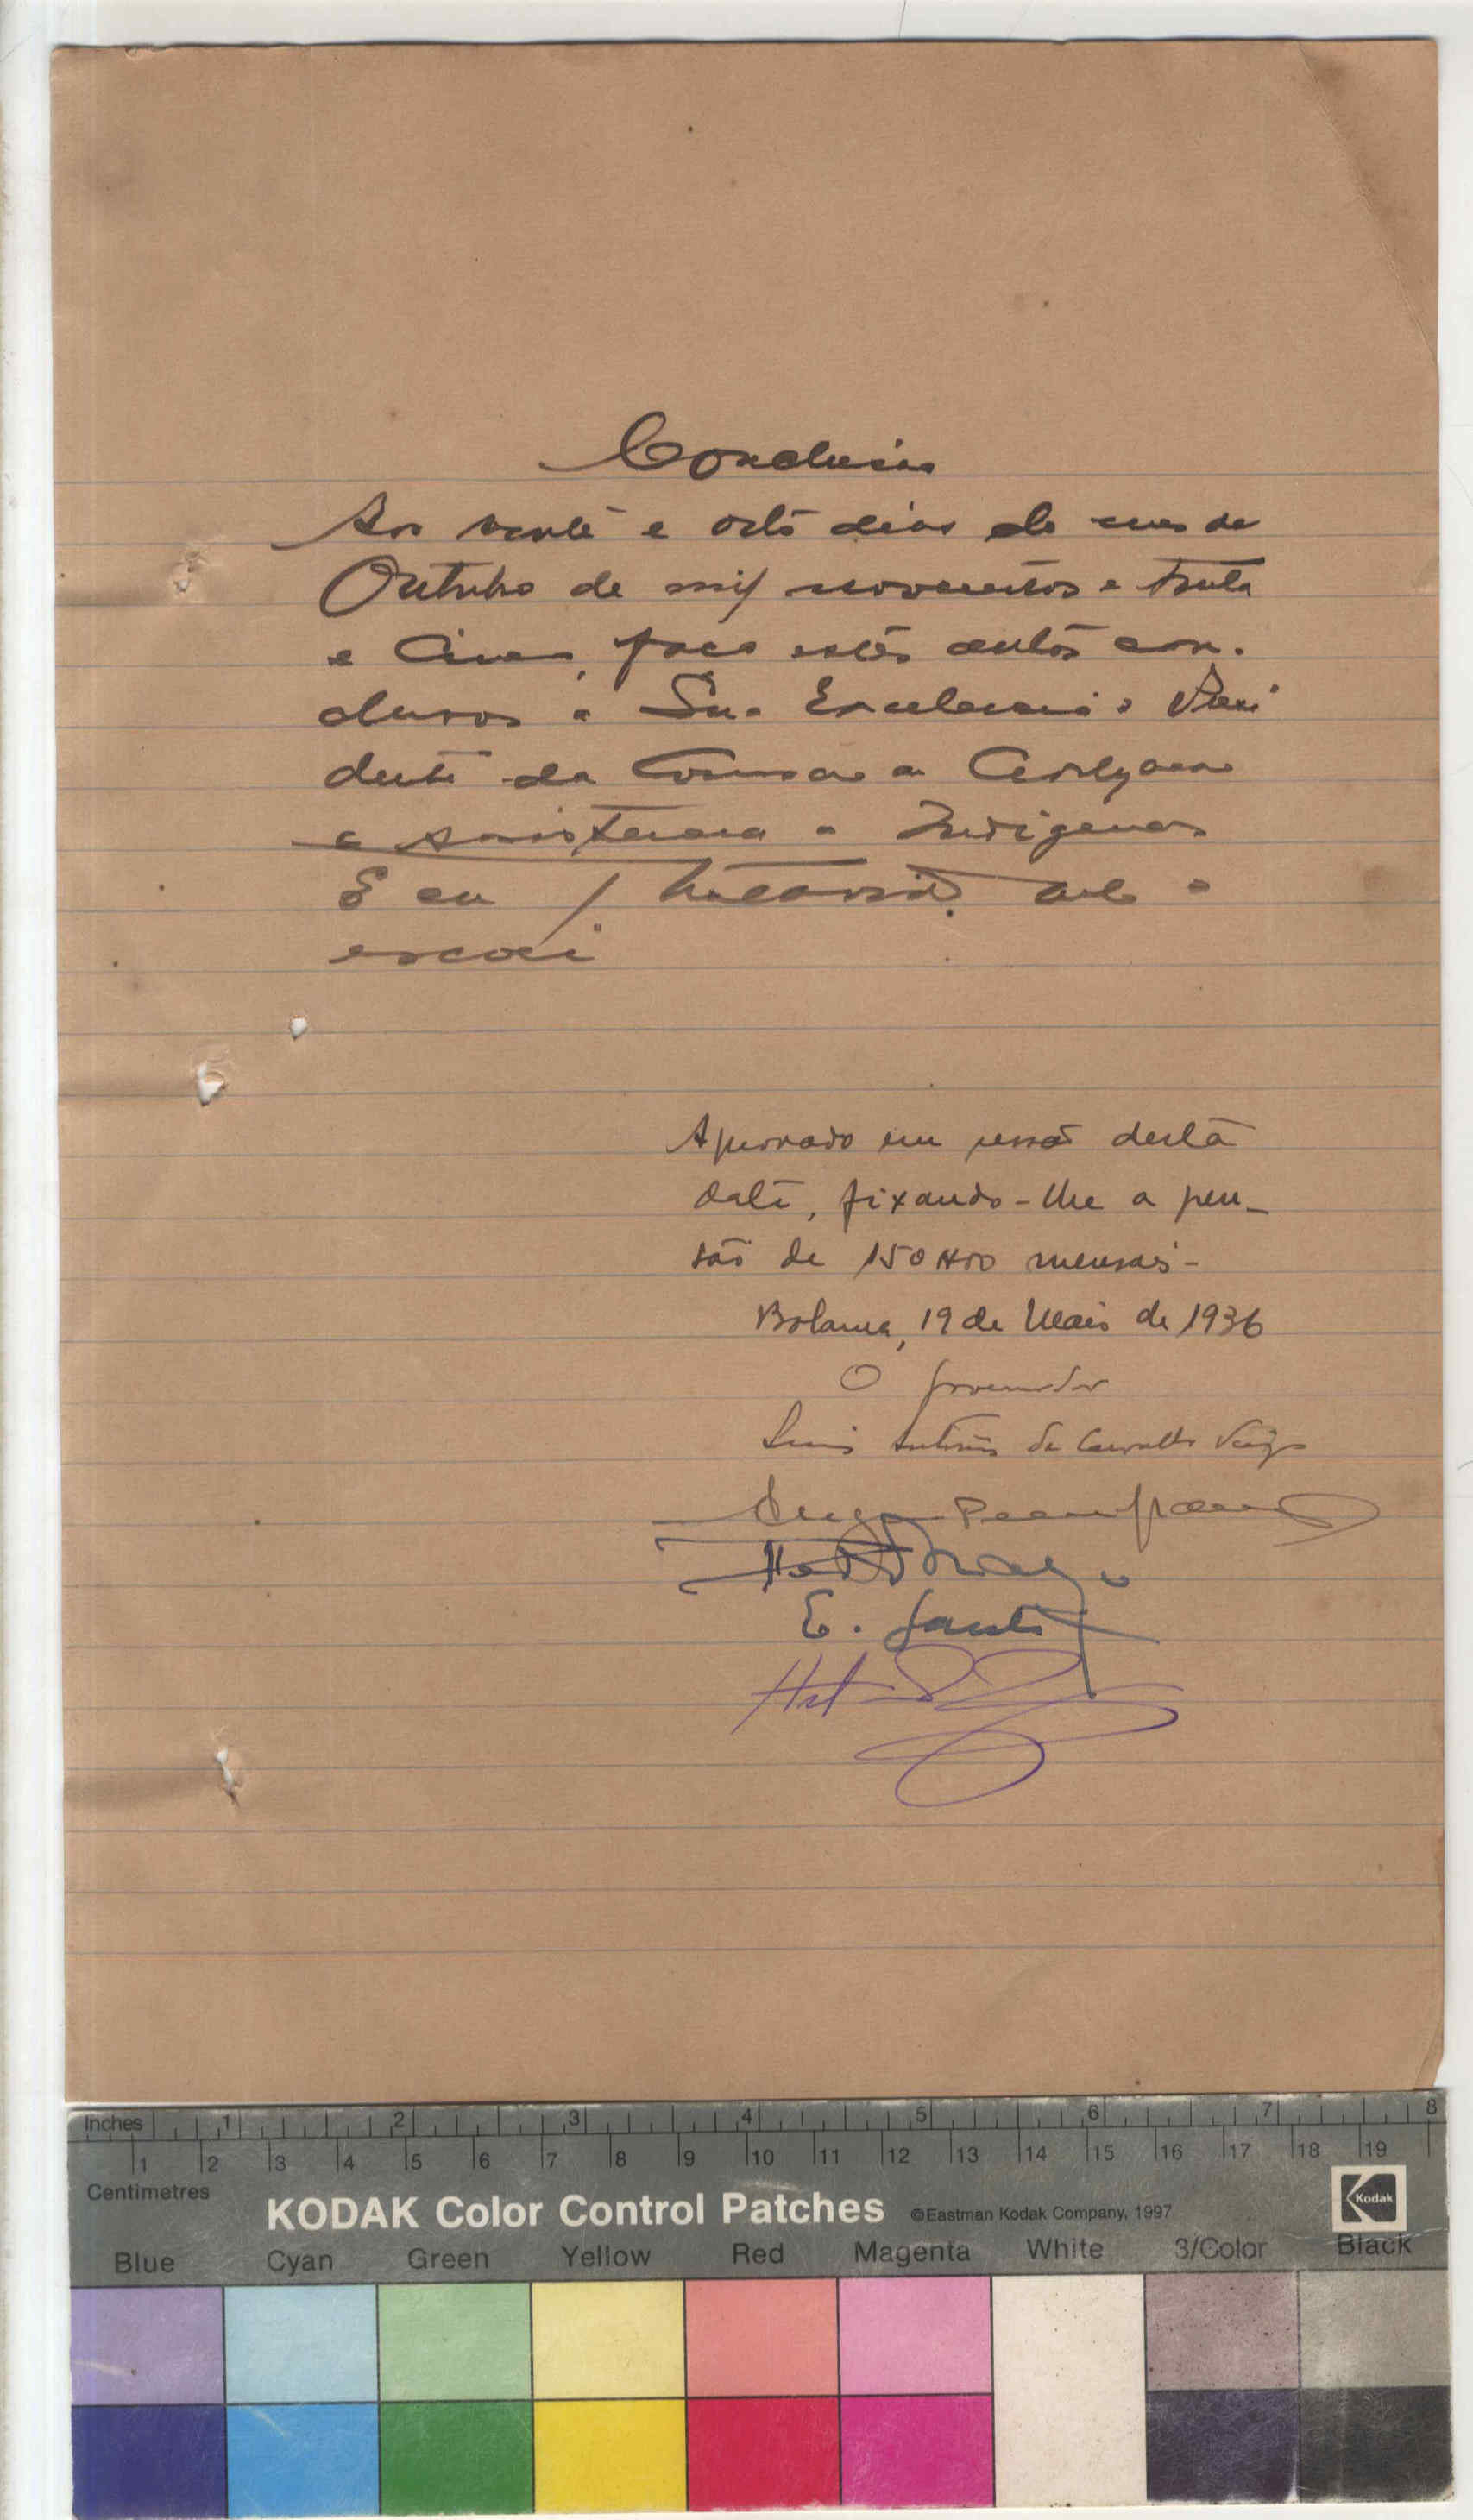 Conclusão
Aos vinte e oito dias do mes de
Outubro de mil novecentos e trinta
e cinco, faço estes autos con-
clusos a Sua Excelencia o Presi
dente da Comissão a
e Assistencia a Indigenas
E eu que o
escrevi
Aprovado em sessão desta
data, fixando-lhe a pen-
são de 150$00 mensais-
Bolama, 19 de Maio de 1936
O Governador
Luis Antonio de Carvalho Viegas
E. Santos
Inches 1 2 3 4 5 6 7 8
1 2 3 4 5 6 7 8 9 10 11 12 13 14 15 16 17 18 19
Centimetres
KODAK Color Control Patches ©Eastman Kodak Company, 1997 Kodak
Blue Cyan Green Yellow Red Magenta White 3/Color Black